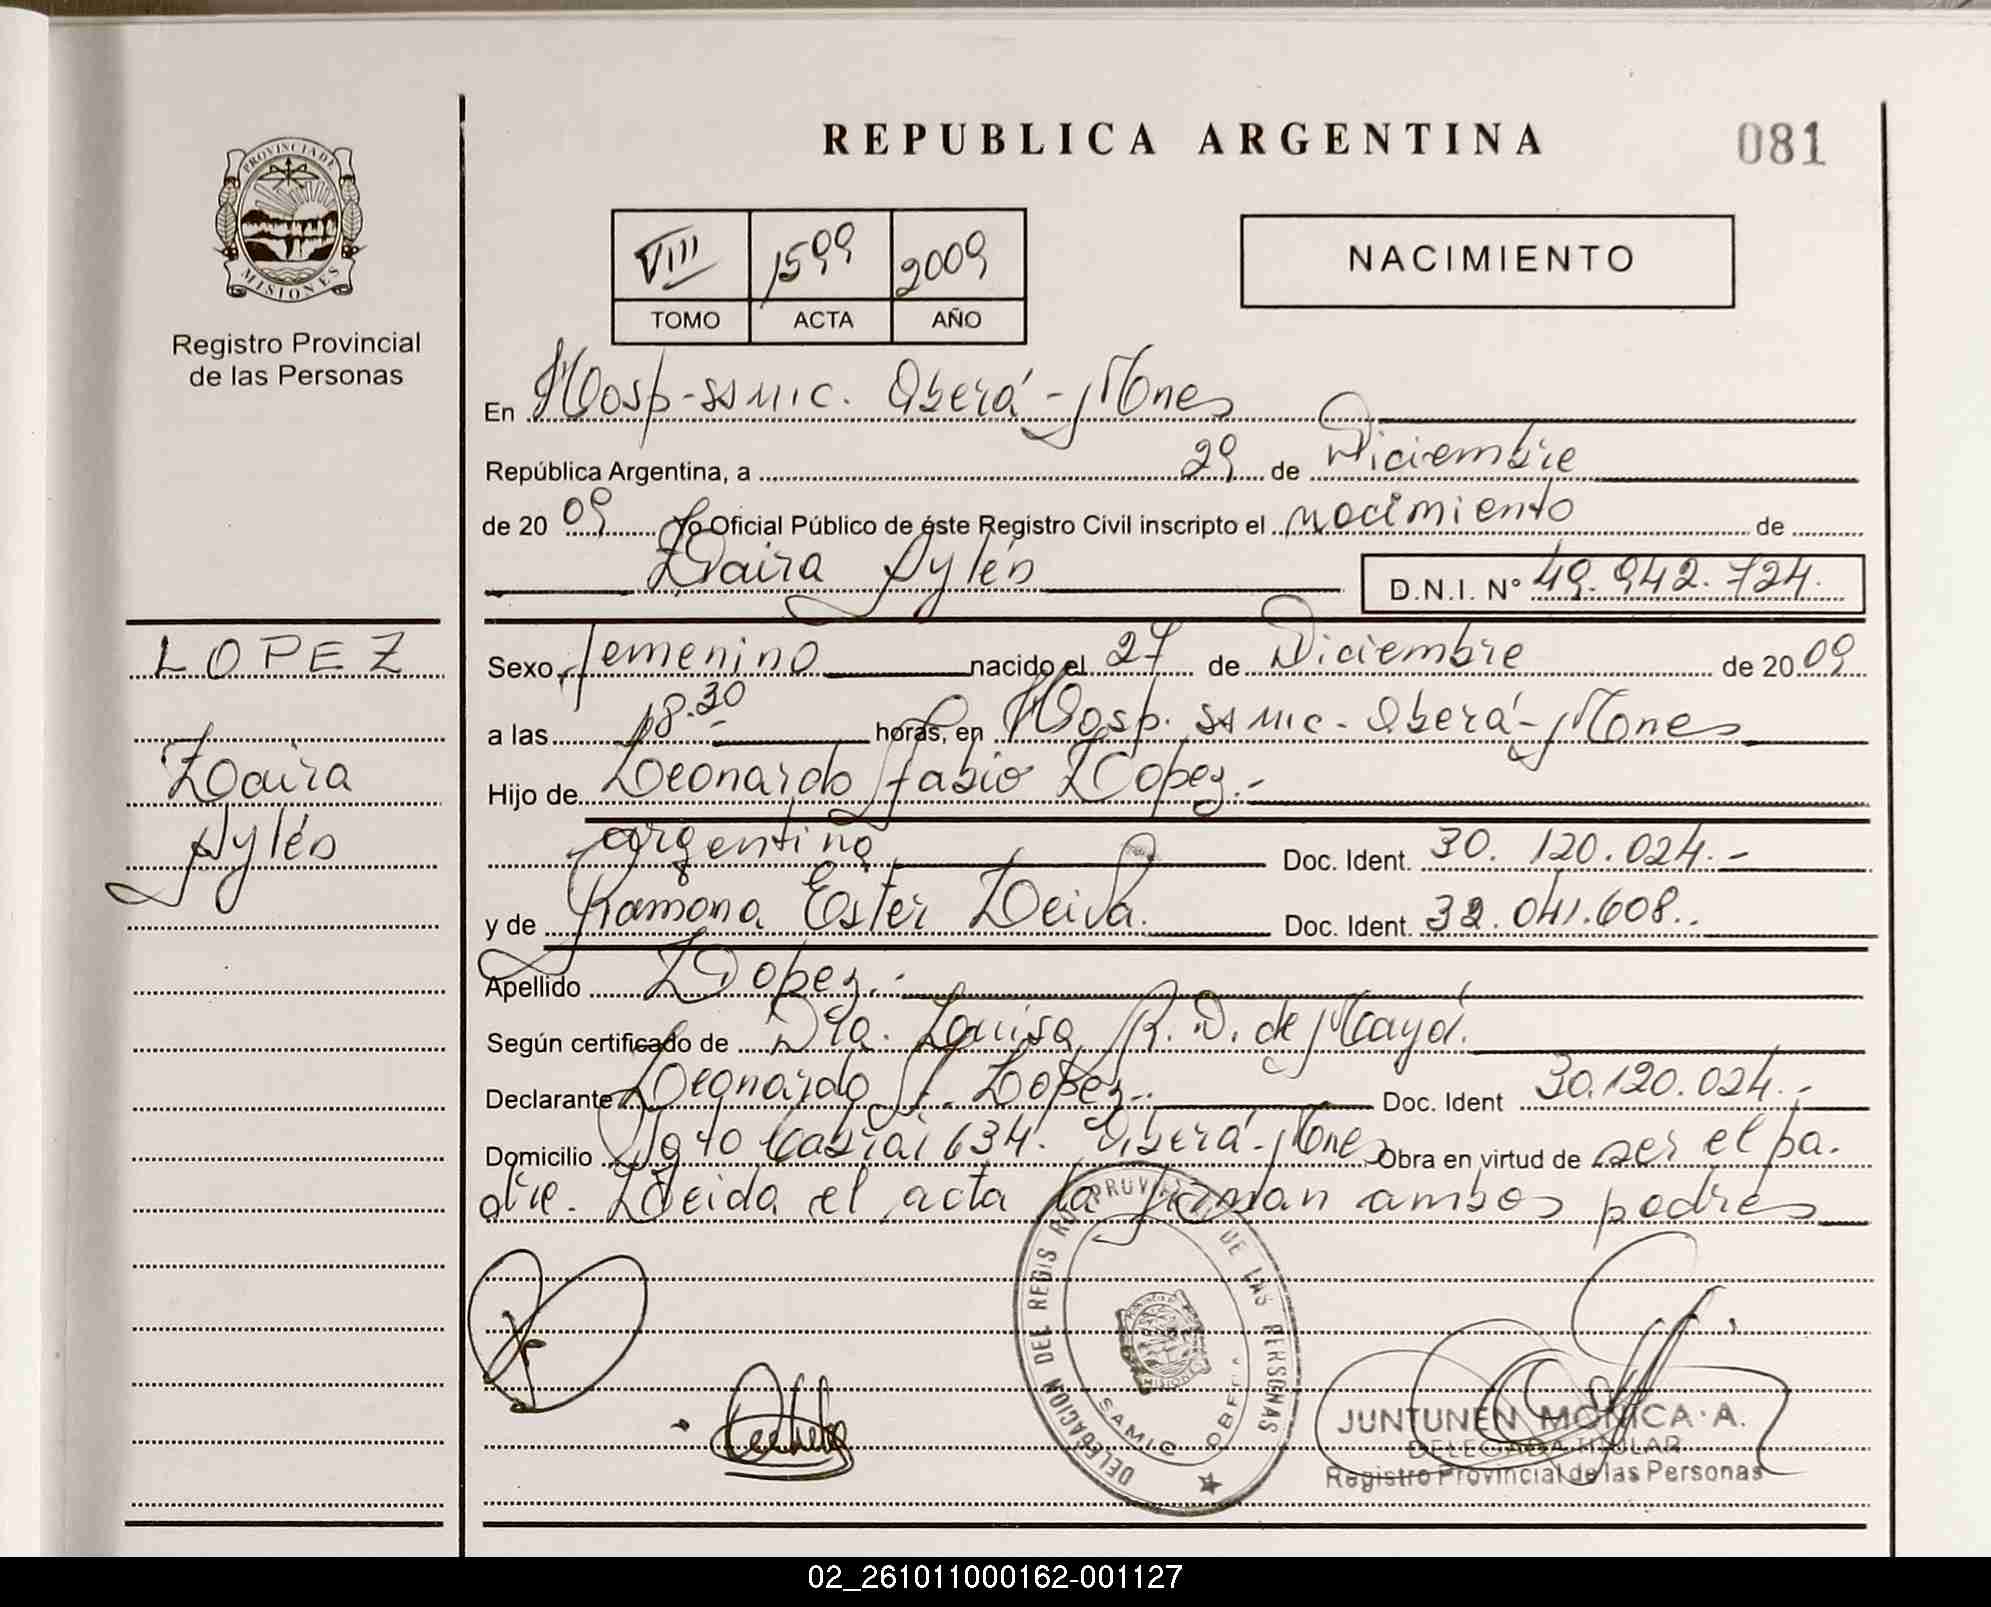 REPUBLICA ARGENTINA
081
PROVINCIA DE
MISIONES
Registro Provincial
de las Personas
VIII 1599 2009
TOMO ACTA AÑO
NACIMIENTO
En Hosp-ssmic. Oberá-Mnes
República Argentina, a 29 de Diciembre
de 2009 Yo Oficial Público de éste Registro Civil inscripto el nacimiento de
Zaira Aylén D.N.I. Nº 49.942.724.
LOPEZ
Zaira
Aylén
Sexo femenino nacido el 27 de Diciembre de 2009
a las 18.30 horas, en Hosp. ssmic-Oberá-Mnes
Hijo de Leonardo fabio Lopez.-
argentino Doc. Ident. 30.120.024.-
y de Ramona Ester Leiva. Doc. Ident. 32.041.608..
Apellido Lopez.-
Según certificado de Dra. Luisa R. D. de Mayol.
Declarante Leonardo f. Lopez.. Doc. Ident 30.120.024.-
Domicilio Sgto Cabral 634. Oberá-Mnes Obra en virtud de ser el pa-
dre. Leida el acta la firman ambos padres
DELEGACION DEL REGISTRO PROVINCIAL DE LAS PERSONAS
SAMIC OBERA
JUNTUNEN MONICA A.
DELEGADA TITULAR
Registro Provincial de las Personas
02_261011000162-001127